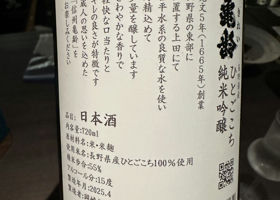 亀齢
ひとごこち
純米吟醸
文5年(1665年)創業
野県の東部に
置する上田にて
平水系の良質な水を
精込めて
量を醸しています
わやかな香りで
軽快な口当たりと
キレの良さが特徴です
成人の思いを込めた
「信州亀齢」を
お楽しみください
品目:日本酒
内容量:720ml
原材料名:米・米麹
使用米:長野県産ひとごこち100%使用
精米歩合:55%
アルコール分:15度
製造年月:2025.4
製造者:岡崎